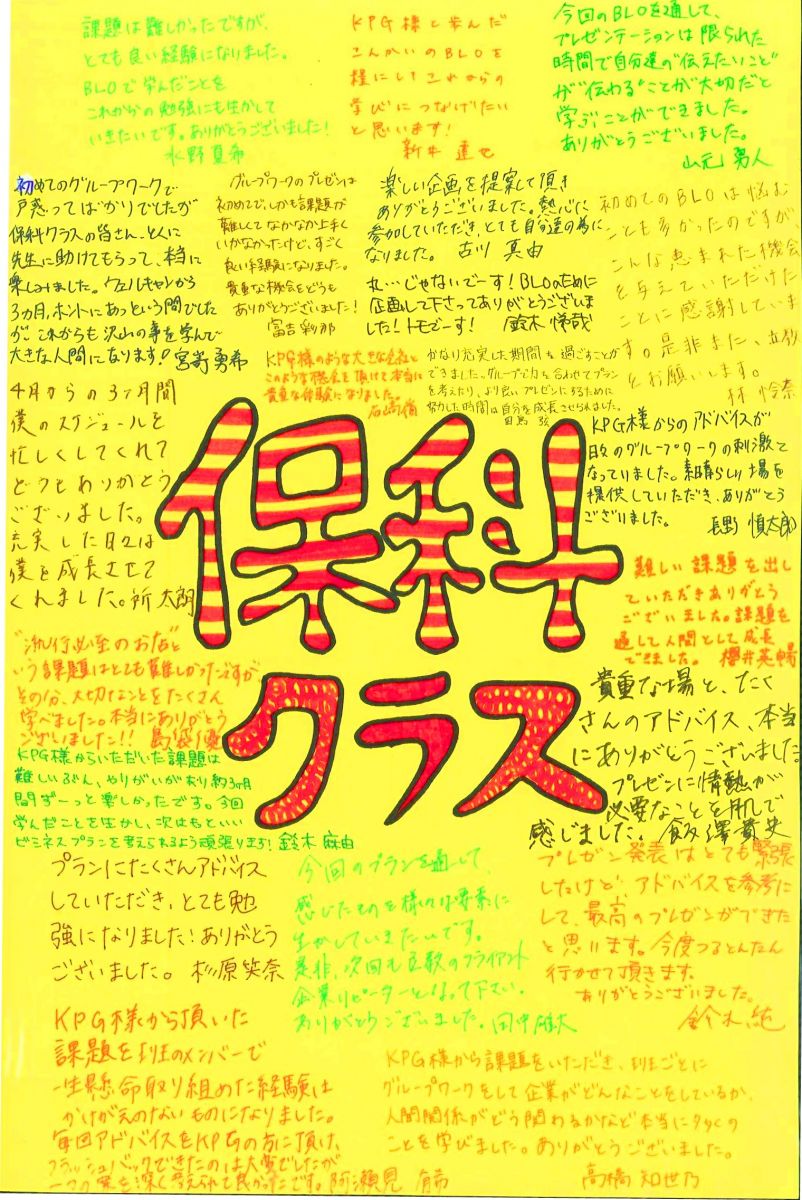 課題は難しかったですが、
とても良い経験になりました。
BLOで学んだことを
これからの勉強にも生かして
いきたいです。ありがとうございました!
水野夏希
KPG様と歩んだ
こんかいのBLOを
糧にしてこれからの
学びにつなげたい
と思います!
新井
今回のBLOを通して、
プレゼンテーションは限られた
時間で自分達の"伝えたいこと"
が"伝わる"ことが大切だと
学ぶことができました。
ありがとうございました。
山元 勇人
初めてのグループワークで
戸惑ってばかりでしたが
保科クラスの皆さん、とくに
先生に助けてもらって、本当に
楽しみました。ウェルキャンから
3ヵ月、ホントにあっという間でした
が、これからも沢山の事を学んで
大きな人間になります! 宮嵜勇希
グループワークのプレゼンは
初めてで、しかも課題が
難しくてなかなか上手く
いかなかったけど、すごく
良い経験になりました。
貴重な機会をどうも
ありがとうございました!
富吉彩那
楽しい企画を提案して頂き
ありがとうございました。熱心に
参加していただき、とても自分達の為に
なりました。 古川 真由
丸…じゃないでーす!BLOのために
企画して下さってありがとうございま
した!トモでーす! 鈴木悌哉
初めてのBLOは悩む
ことも多かったのですが、
こんな恵まれた機会
を与えていただけた
ことに感謝していま
す。是非また、立教
をお願いします。
林 怜奈
KPG様のような大きな会社と
このような機会を頂けて本当に
貴重な体験になりました。
石崎脩
かなり充実した期間を過ごすことが
できました。グループで力を合わせてプラン
を考えたり、より良いプレゼンにするために
努力した時間は自分を成長させられました。
目馬 弦
4月からの3ヶ月間
僕のスケジュールを
忙しくしてくれて
どうもありがとう
ございました。
充実した日々は
僕を成長させて
くれました。祈 太朗
KPG様からのアドバイスが
日々のグループワークの刺激と
なっていました。素晴らしい場を
提供していただき、ありがとう
ございました。 長野 慎太郎
保科
クラス
難しい課題を出し
ていただきありがとう
ございました。課題を
通して人間として成長
できました。 櫻井英暢
"流行必至のお店"と
いう課題はとても難しかったですが、
その分、大切なことをたくさん
学べました。本当にありがとう
ございました!! 島袋優
貴重な場と、たく
さんのアドバイス、本当
にありがとうございました
プレゼンに情熱が
必要なことを肌で
感じました。 飯澤貴史
KPG様からいただいた課題は
難しいぶん、やりがいがあり約3ヵ月
間ずーっと楽しかったです。今回
学んだことを生かし、次はもといい
ビジネスプランを考えられるよう頑張ります! 鈴木麻由
プランにたくさんアドバイス
していただき、とても勉
強になりました!ありがとう
ございました。 杉原笑奈
今回のプランを通して、
感じたものを様々な要素に
生かしていきたいです。
是非、次回も立教のクライアント
企業リピーターとなって下さい。
ありがとうございました。田中雄大
プレゼン発表はとても緊張
したけど、アドバイスを参考に
して、最高のプレゼンができた
と思います。今度つるとんたん
行かせて頂きます。
ありがとうございました。
鈴木純
KPG様から頂いた
課題を班のメンバーで
一生懸命取り組めた経験は
かけがえのないものになりました。
毎回アドバイスをKPGの方に頂け、
フラッシュバックできたのは大変でしたが
考えられて良かったです。阿瀬見
KPG様から課題をいただき、班ごとに
グループワークをして企業がどんなことをしているか、
人間関係がどう関わるかなど本当に多くの
ことを学びました。ありがとうございました。
高橋知世乃